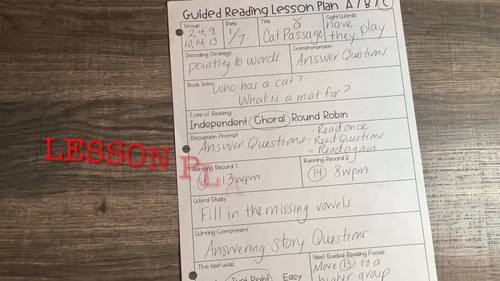 Guided Reading Lesson Plan A / B / C
Group
2, 4, 9,
10, 14, 13
Date
1/7
Title
Cat Passage
Sight Words
a
have
they play
Decoding Strategy
pointing to words
Comprehension
Answer Questions
Book Intro
Who has a cat?
What is a mat for?
Type of Reading
Independent Choral Round Robin
Discussion Prompt
Answer Questions
- Read once
- Read Questions
- Read again
LESSON PLA
Running Record 1
13 wpm
Running Record 2
14 8 wpm
Word Study
Fill in the missing vowels
Writing Component
Answering Story Questions
This text was:
Just Right Easy
Next Guided Reading Focus
Move 13 to a
higher group